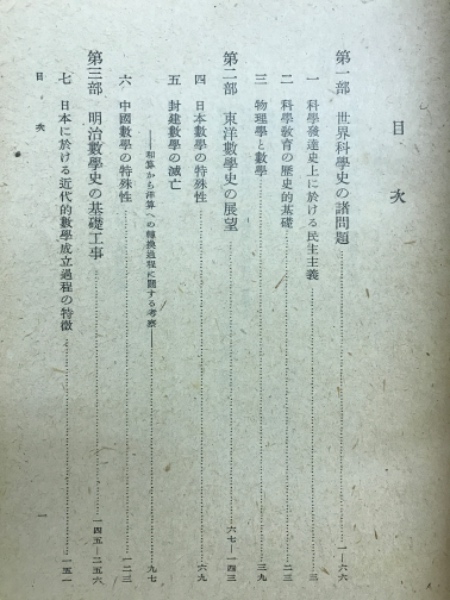 目次
第一部 世界科學史の諸問題……一—六六
一 科學發達史上に於ける民主主義……三
二 科學敎育の歷史的基礎……二三
三 物理學と數學……三九
第二部 東洋數學史の展望……六七—一四三
四 日本數學の特殊性……六九
五 封建數學の滅亡……九七
——和算から洋算への轉換過程に關する考察——
六 中國數學の特殊性……一二三
第三部 明治數學史の基礎工事……一四五—二五六
七 日本に於ける近代的數學成立過程の特徵……一五一
目次 一